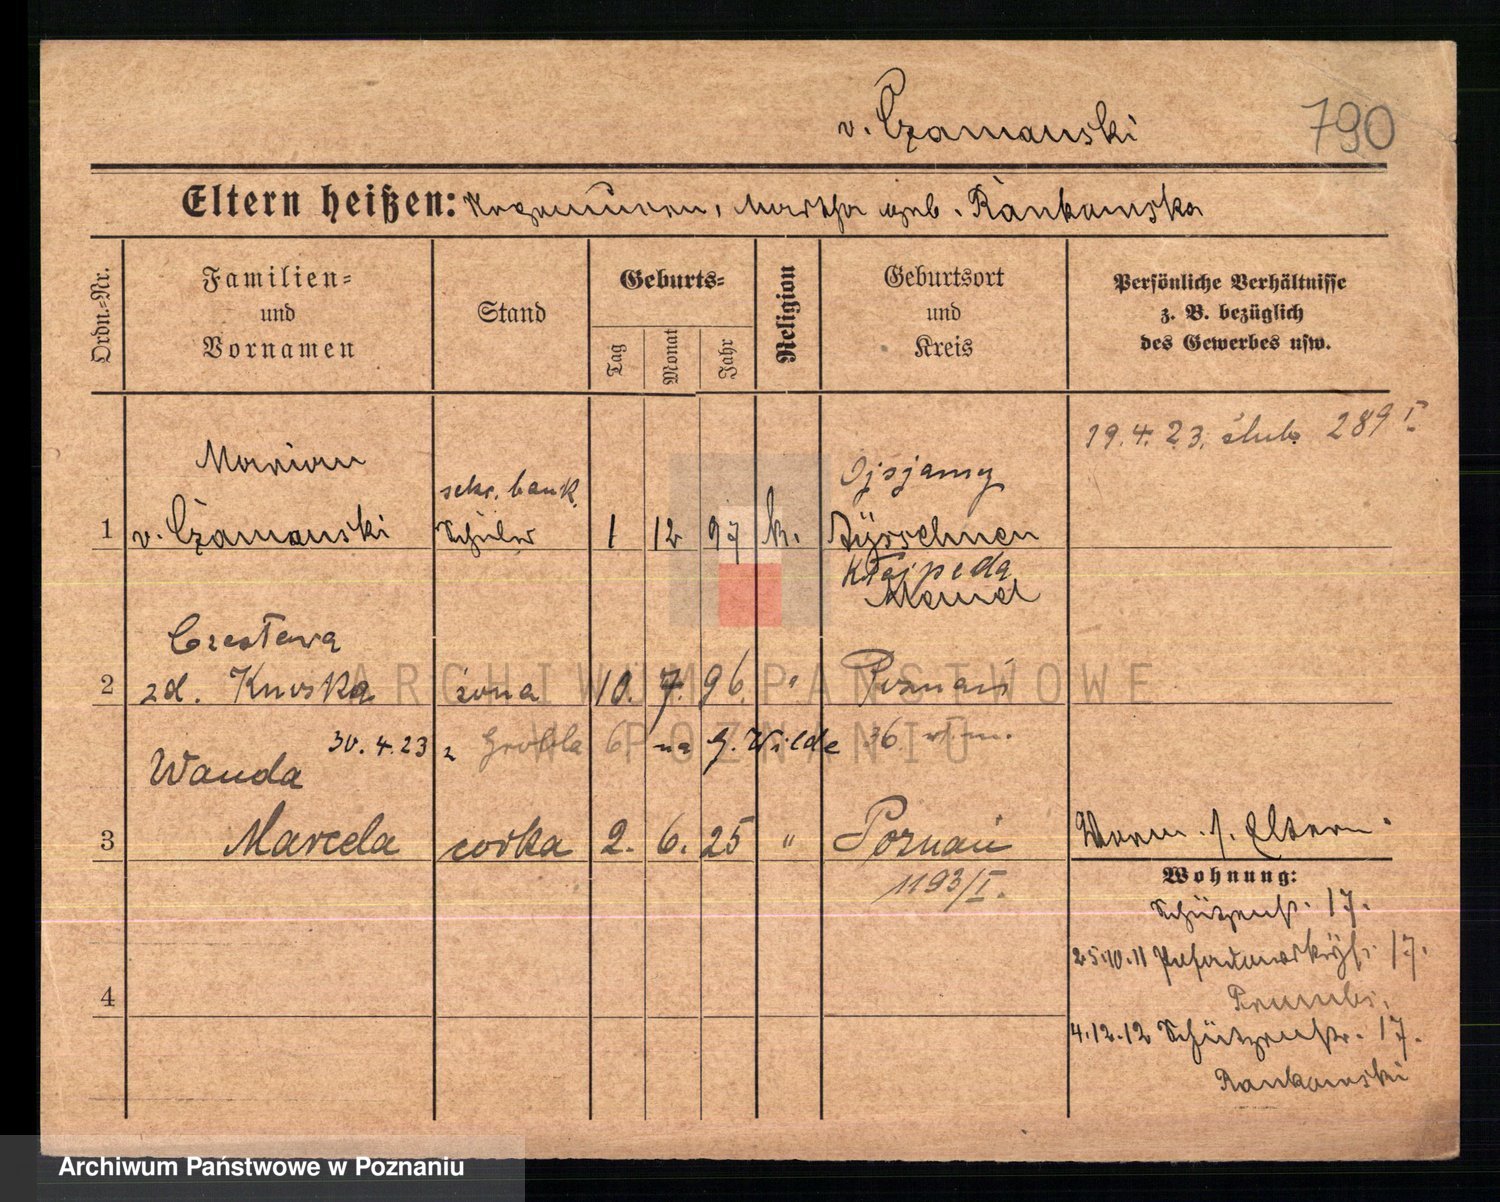 v. Czamanski
790
Eltern heißen: Martha geb. Rankowska
Ordn.-Nr.
Familien-
und
Vornamen
Stand
Geburts-
Tag
Monat
Jahr
Religion
Geburtsort
und
Kreis
Persönliche Verhältnisse
z. B. bezüglich
des Gewerbes usw.
19.4.23. ślub 289 I.
Marian
sekr. bank.
1 v. Czamanski Schüler 1 12 97 k.
Kłajpeda
Memel
Czesława
2 zd. żona 10. 7. 96. " Poznań
30.4.23 z Grobla 6 na G. Wilde 36
Wanda
3 Marcela córka 2. 6. 25 " Poznań
1193/I.
Vorm. s. Eltern.
Wohnung:
Schützenstr. 17.
25.10.11 17.
4
4.12.12 Schützenstr. 17.
Rankowski
ARCHIWUM PAŃSTWOWE
W POZNANIU
Archiwum Państwowe w Poznaniu